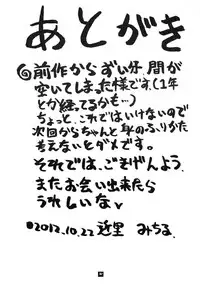 あとがき
◎前作からずい分、間が
空いてしまった様です。(1年
とか経ってるかも…)
ちょっと、これではいけないので
次回からちゃんと身のふりかた
考えないとダメです。
それでは、ごきげんよう。
またお会い出来たら
うれしいなv
●2012.10.22 近里 みちる